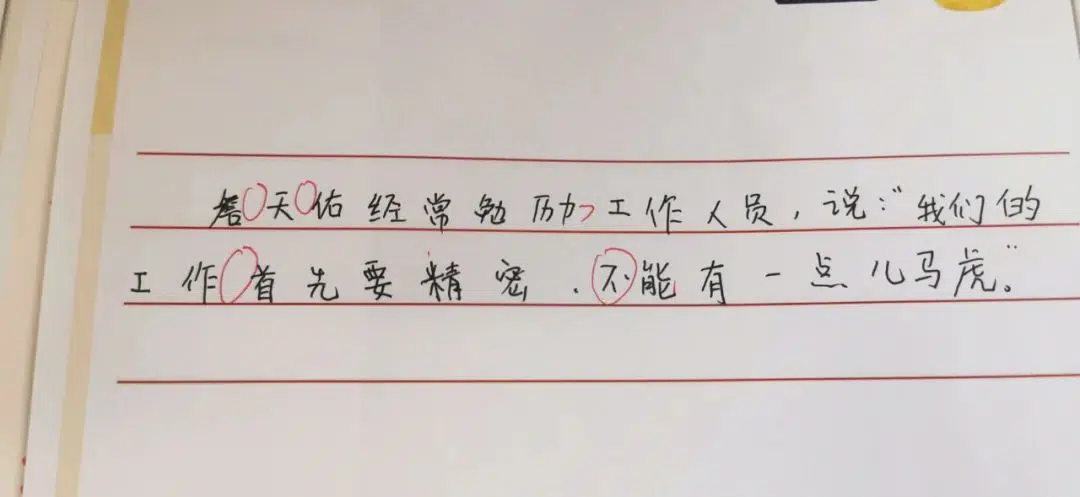 詹天佑经常勉励工作人员，说：“我们的
工作首先要精密．不能有一点儿马虎。”